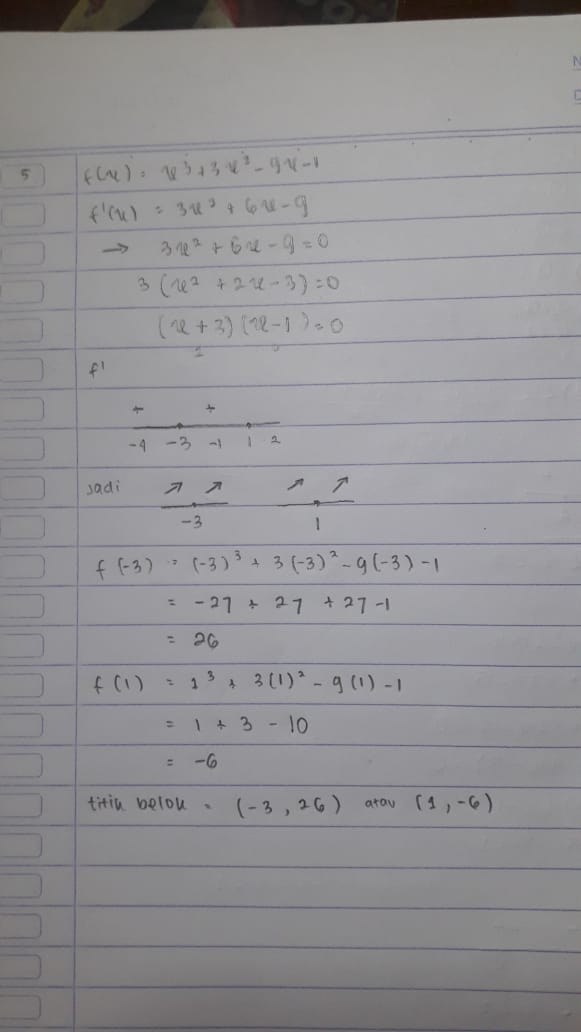 N
D
5 f(x) = x³ + 3x³ - 9x - 1
f'(x) = 3x² + 6x - 9
→ 3x² + 6x - 9 = 0
3 (x² + 2x - 3) = 0
(x + 3) (x - 1) = 0
f'
+ +
-4 -3 -1 1 2
Jadi ↗ ↗ ↗ ↗
-3 1
f (-3) = (-3)³ + 3(-3)² - 9(-3) - 1
= -27 + 27 + 27 - 1
= 26
f (1) = 1³ + 3(1)² - 9(1) - 1
= 1 + 3 - 10
= -6
titik belok = (-3, 26) atau (1, -6)